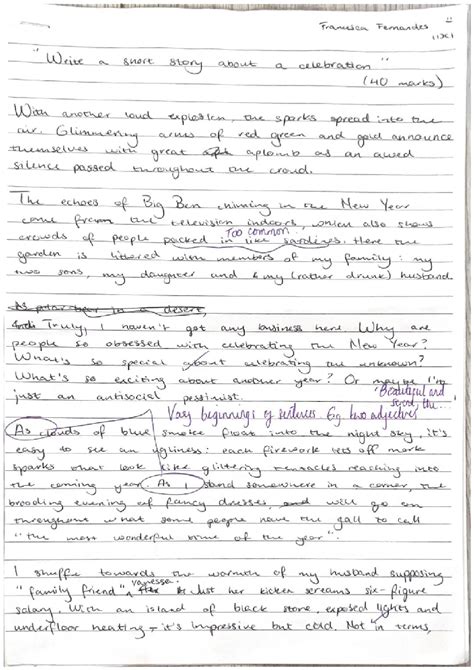 Francesca Fernandes
11X1
"Write a short story about a celebration"
(40 marks)
With another loud explosion, the sparks spread into the
air. Glimmering arms of red green and gold announce
themselves with great aplomb as an awed
silence passed throughout the crowd.
The echoes of Big Ben chiming in the New Year
come from the television indoors, which also shows
Too common.
crowds of people packed in like sardines. Here the
garden is littered with members of my family: my
two sons, my daughter and my (rather drunk) husband
in a desert,
Truly, I haven't got any business here. Why are
people so obsessed with celebrating the New Year?
What's so special about celebrating the unknown?
What's so exciting about another year? Or maybe I'm
just an antisocial pessimist.
Beautiful and
Vary beginnings of sentences Eg. two adjectives
As clouds of blue smoke float into the night sky, it's
easy to see an ugliness: each firework lets off more
sparks that look like glittering tentacles reaching into
the coming year. As I stand somewhere in a corner, the
brooding evening of fancy dresses, will go on
throughout what some people have the gall to call
"the most wonderful time of the year".
I shuffle towards the warmth of my husband supposing
"family friend" Vanessa. Just her kitchen screams six-figure
salary. With an island of black stone, exposed lights and
underfloor heating, it's impressive but cold. Not in terms,